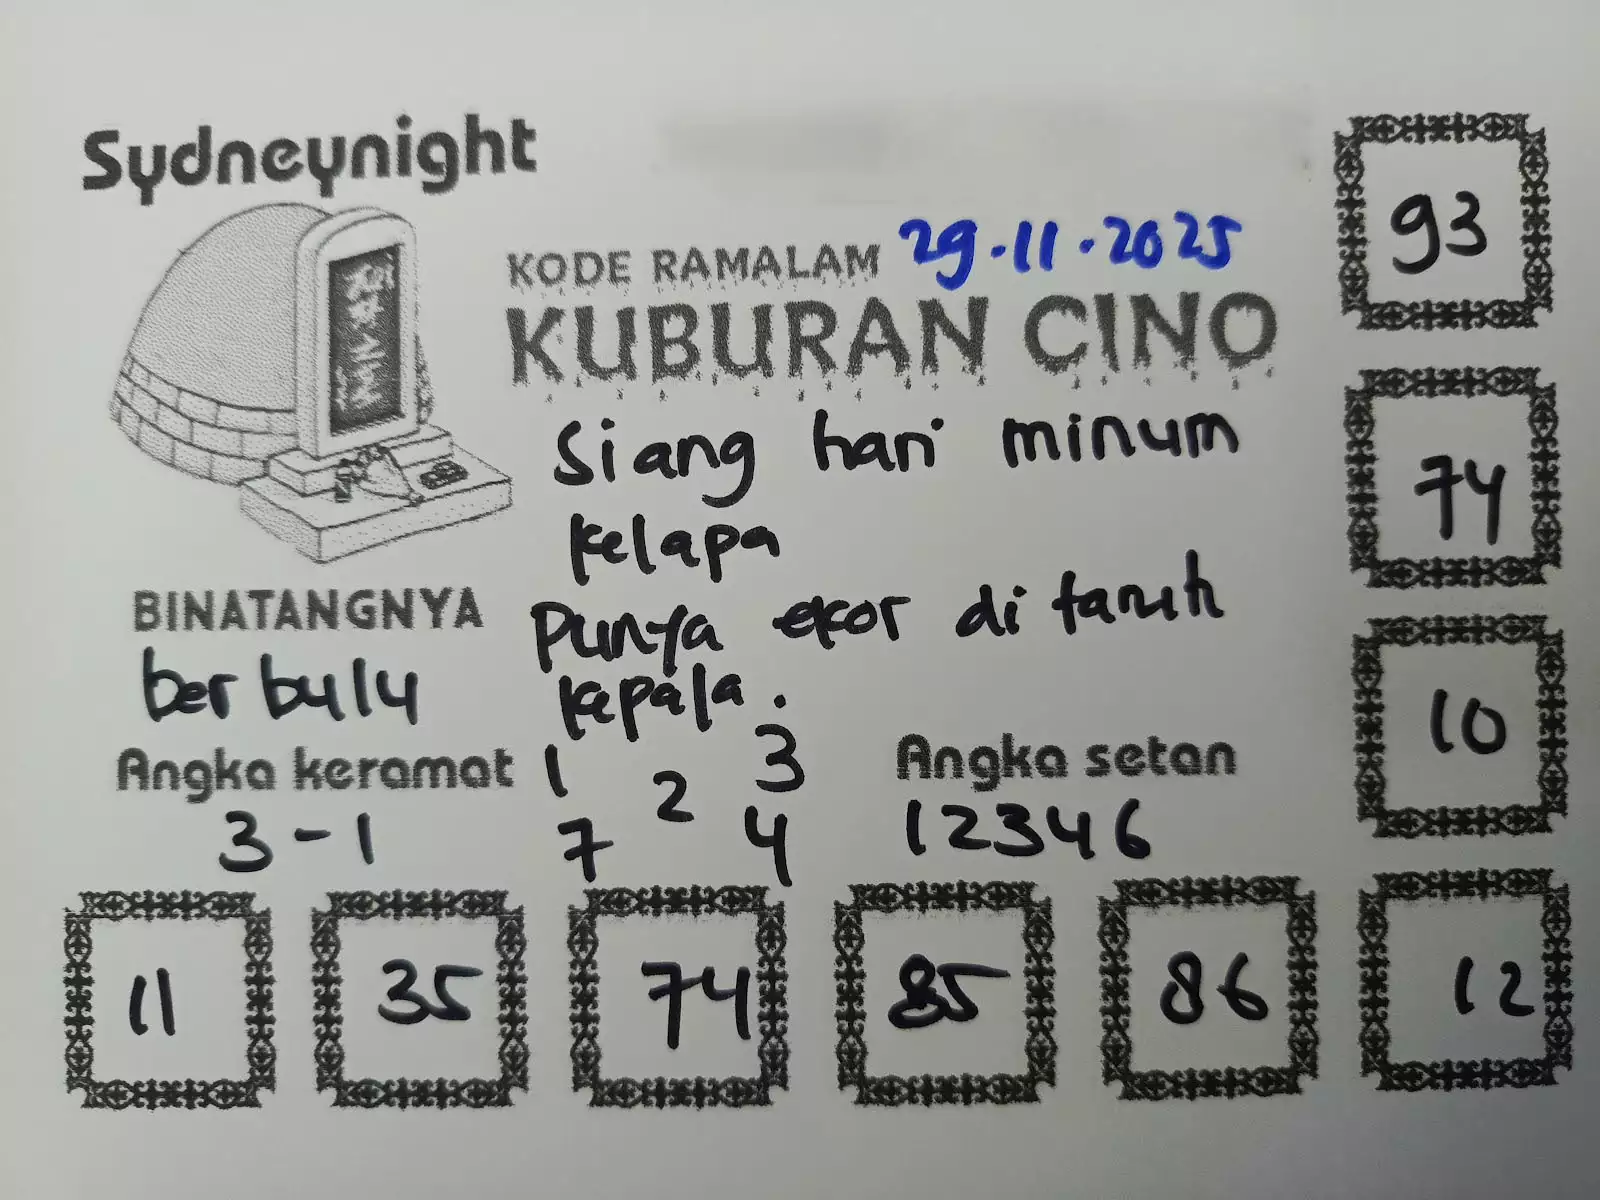 Sydneynight
KODE RAMALAM 29.11.2025
KUBURAN CINO
Siang hari minum
kelapa
Punya ekor di taruh
kepala.
BINATANGNYA
ber bulu
Angka keramat
3-1
1 3
2
7 4
Angka setan
12346
93
74
10
11 35 74 85 86 12